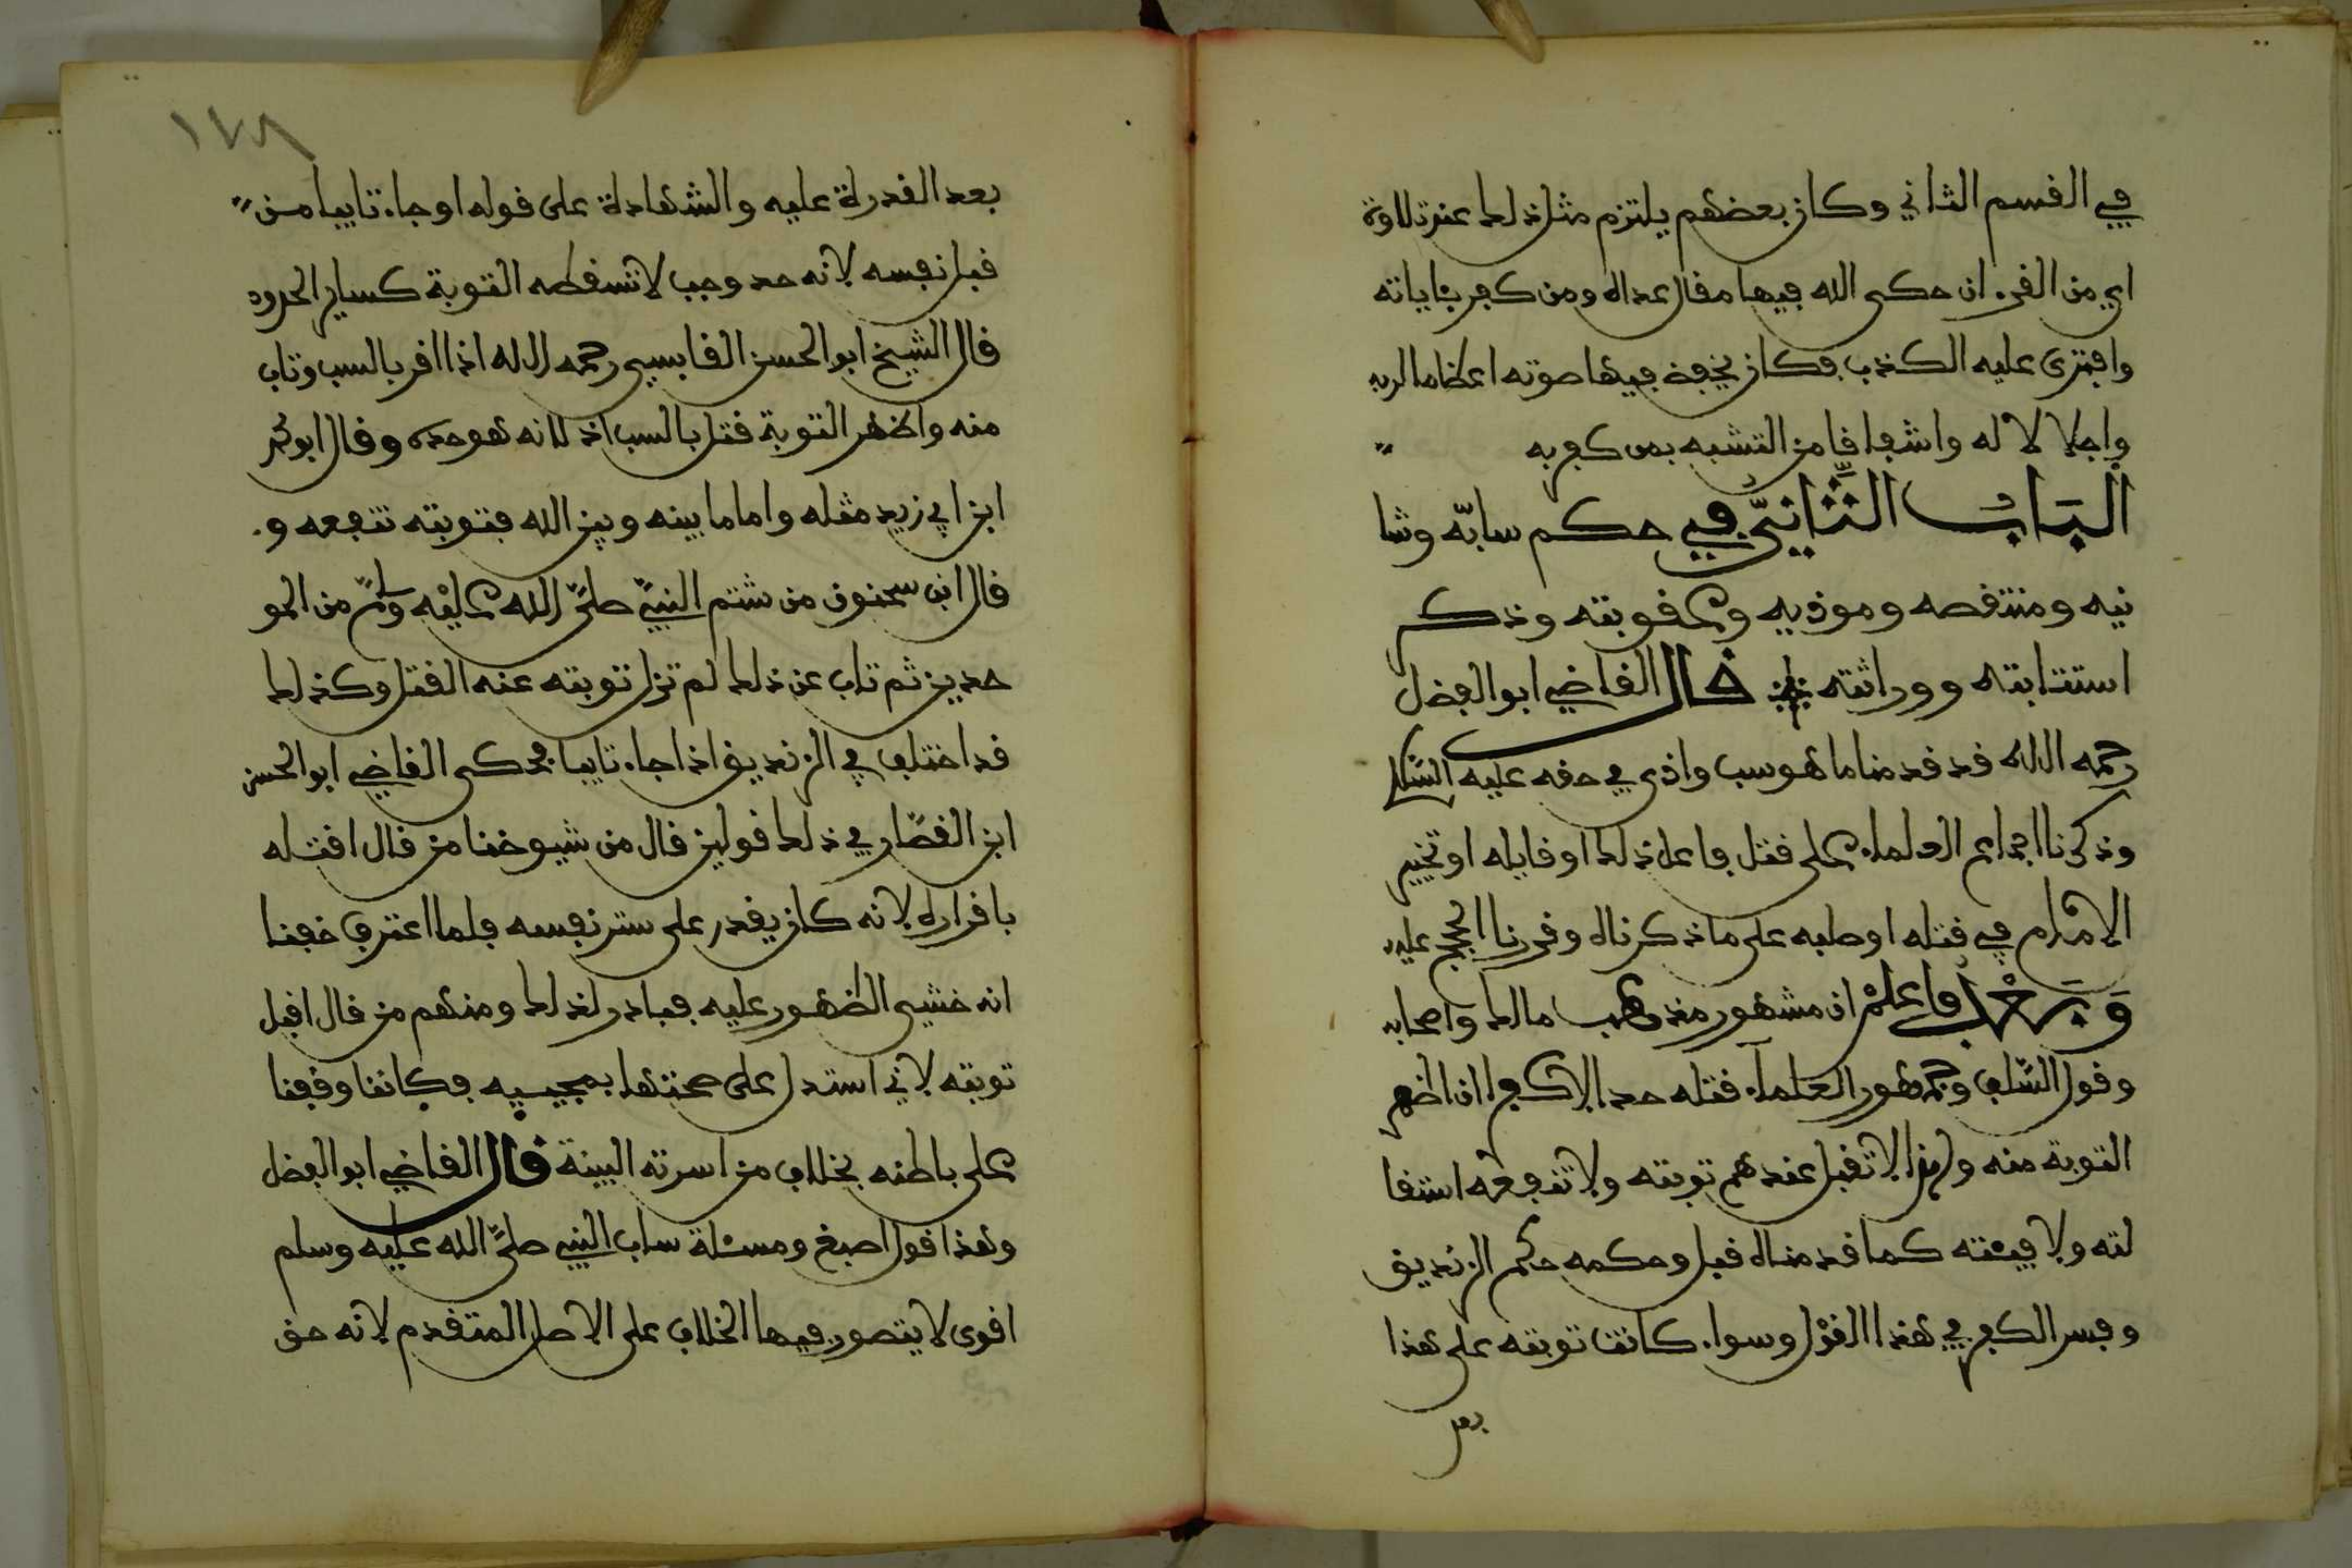 في القسم الثاني وكان بعضهم يلتزم مثل ذلك عند تلاوة
اي من القرءان حكى الله فيها مقال عداه ومن كفر بئاياته
وافترى عليه الكذب فكان يخفض فيها صوته اعظاما لربه
واجلالا له واشفاقا من التشبه بمن كفر به
الباب الثاني في حكم سابه وشا
نيه ومنتقصه وموذيه وعقوبته وذكر
استتابته ووراثته قال القاضي ابو الفضل
رحمه الله قد قدمنا ما هو سب واذى في حقه عليه السلام
وذكرنا اجماع العلماء على قتل فاعل ذلك او قايله او تخيير
الامام في قتله او صلبه على ما ذكرناه وقررنا الحجج عليه
وبعد فاعلم ان مشهور مذهب مالك واصحابه
وقول السلف وجمهور العلماء قتله حدا لا كفرا ان اظهر
التوبة منه ولهذا لا تقبل عندهم توبته ولا تنفعه استقا
لته ولا فيئته كما قدمناه قبل وحكمه حكم الزنديق
ومسر الكفر في هذا القول وسواء كانت توبته على هذا
بعد
١٧٨
بعد القدرة عليه والشهادة على قوله او جاء تايبا من
قبل نفسه لانه حد وجب لا تسقطه التوبة كساير الحدود
قال الشيخ ابو الحسن القابسي رحمه الله اذا اقر بالسب وتاب
منه واظهر التوبة قتل بالسب اذ لانه هو حده وقال ابو محمد
ابن ابي زيد مثله واما ما بينه وبين الله فتوبته تنفعه و
قال ابن سحنون من شتم النبي صلى الله عليه وسلم من المو
حدين ثم تاب عن ذلك لم تزل توبته عنه القتل وكذلك
قد اختلف في الزنديق اذا جاء تايبا فحكى القاضي ابو الحسن
ابن القصار في ذلك قولين قال من شيوخنا من قال اقتله
باقراره لانه كان يقدر على ستر نفسه فلما اعترف خفنا
انه خشي الظهور عليه فبادر لذلك ومنهم من قال اقبل
توبته لاني استدل على صحتها بمجيييه فكاننا وقفنا
على باطنه بخلاف من اسرته البينة قال القاضي ابو الفضل
وهذا قول اصبغ ومسئلة ساب النبي صلى الله عليه وسلم
اقوى لا يتصور فيها الخلاف على الاصل المتقدم لانه حق